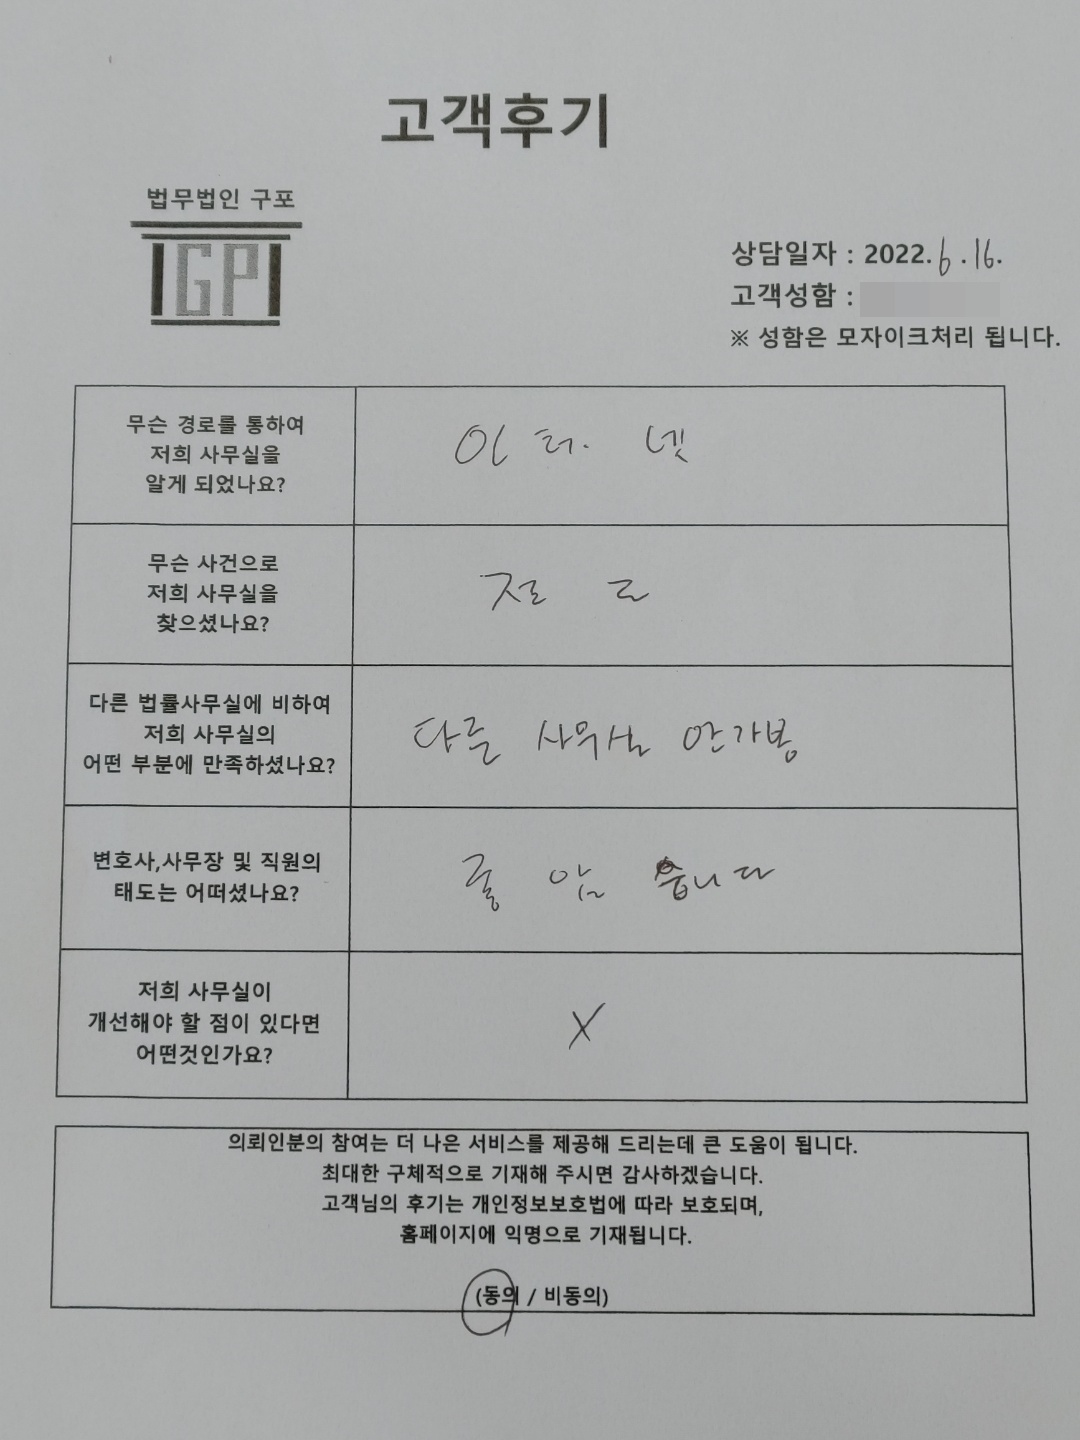 고객후기
법무법인 구포
IGPI
상담일자 : 2022. 6 . 16.
고객성함 :
※ 성함은 모자이크처리 됩니다.
무슨 경로를 통하여
저희 사무실을
알게 되었나요?
인터넷
무슨 사건으로
저희 사무실을
찾으셨나요?
다른 법률사무실에 비하여
저희 사무실의
어떤 부분에 만족하셨나요?
다른 사무실 안가봄
변호사,사무장 및 직원의
태도는 어떠셨나요?
습니다
저희 사무실이
개선해야 할 점이 있다면
어떤것인가요?
X
의뢰인분의 참여는 더 나은 서비스를 제공해 드리는데 큰 도움이 됩니다.
최대한 구체적으로 기재해 주시면 감사하겠습니다.
고객님의 후기는 개인정보보호법에 따라 보호되며,
홈페이지에 익명으로 기재됩니다.
(동의 / 비동의)